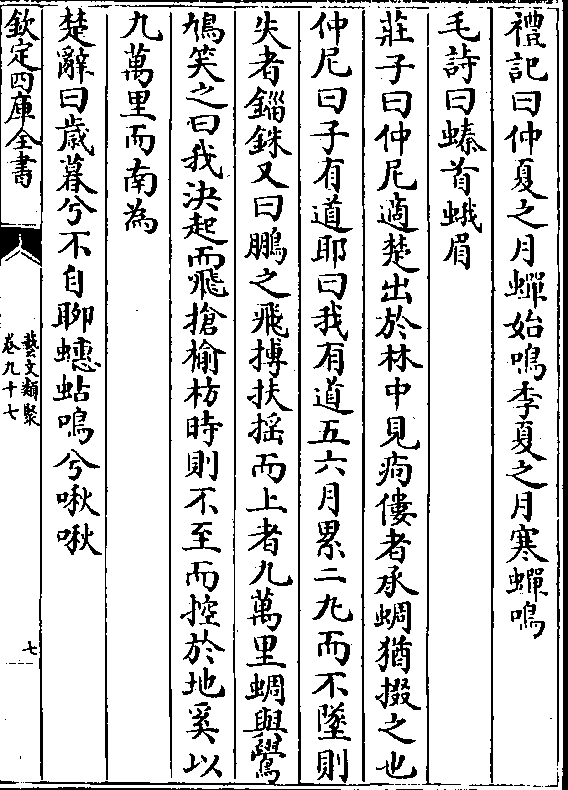 禮記曰仲夏之月蟬始鳴季夏之月寒蟬鳴
毛詩曰螓首蛾眉
莊子曰仲尼適楚出於林中見痀僂者承蜩猶掇之也
仲尼曰子有道耶曰我有道五六月累二丸而不墜則
失者錙銖又曰鵬之飛搏扶揺而上者九萬里蜩與鷽
鳩笑之曰我决起而飛搶榆枋時則不至而控於地奚以
九萬里而南為
楚辭曰歲暮兮不自聊蟪蛄鳴兮啾啾
欽定四庫全書
藝文類聚
卷九十七
七